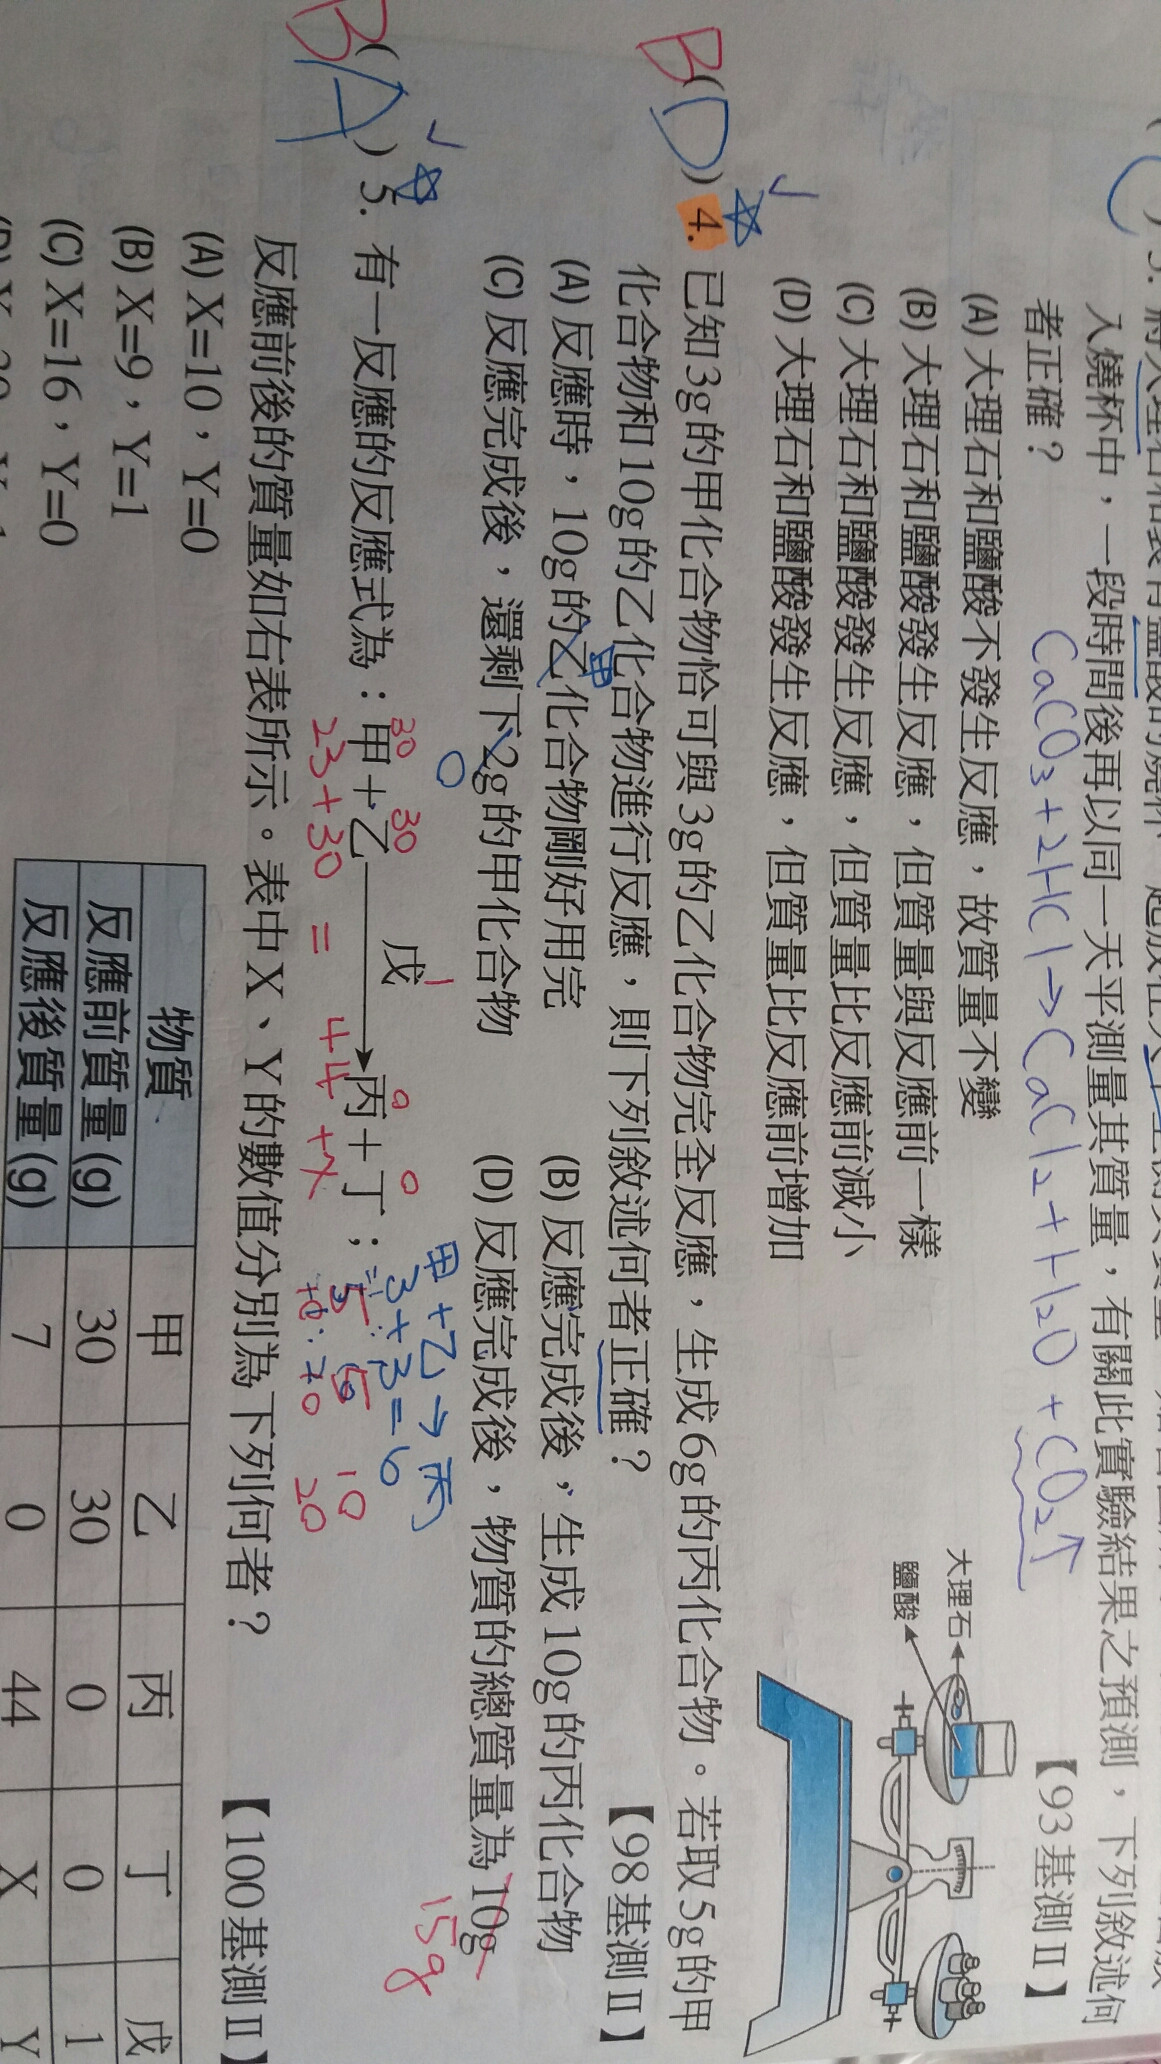 入燒杯中，一段時間後再以同一天平測量其質量，有關此實驗結果之預測，下列敘述何
者正確？
【93基測Ⅱ】
CaCO₃+2HCl→CaCl₂+H₂O+CO₂↑
(A) 大理石和鹽酸不發生反應，故質量不變
(B) 大理石和鹽酸發生反應，但質量與反應前一樣
(C) 大理石和鹽酸發生反應，但質量比反應前減小
(D) 大理石和鹽酸發生反應，但質量比反應前增加
大理石
鹽酸
B(D) 4. 已知3g的甲化合物恰可與3g的乙化合物完全反應，生成6g的丙化合物。若取5g的甲
化合物和10g的乙化合物進行反應，則下列敘述何者正確？
【98基測Ⅱ】
甲
(A) 反應時，10g的乙化合物剛好用完
(B) 反應完成後，生成10g的丙化合物
(C) 反應完成後，還剩下2g的甲化合物
(D) 反應完成後，物質的總質量為10g
0
15g
甲+乙→丙
3+3=6
5
10
20
B(A) 5. 有一反應的反應式為：甲＋乙 戊→ 丙＋丁；
30 30 1 0 0
23+30 = 44+X
反應前後的質量如右表所示。表中X、Y的數值分別為下列何者？
【100基測Ⅱ】
(A) X=10，Y=0
(B) X=9，Y=1
(C) X=16，Y=0
物質 甲 乙 丙 丁 戊
反應前質量(g) 30 30 0 0 1
反應後質量(g) 7 0 44 X Y